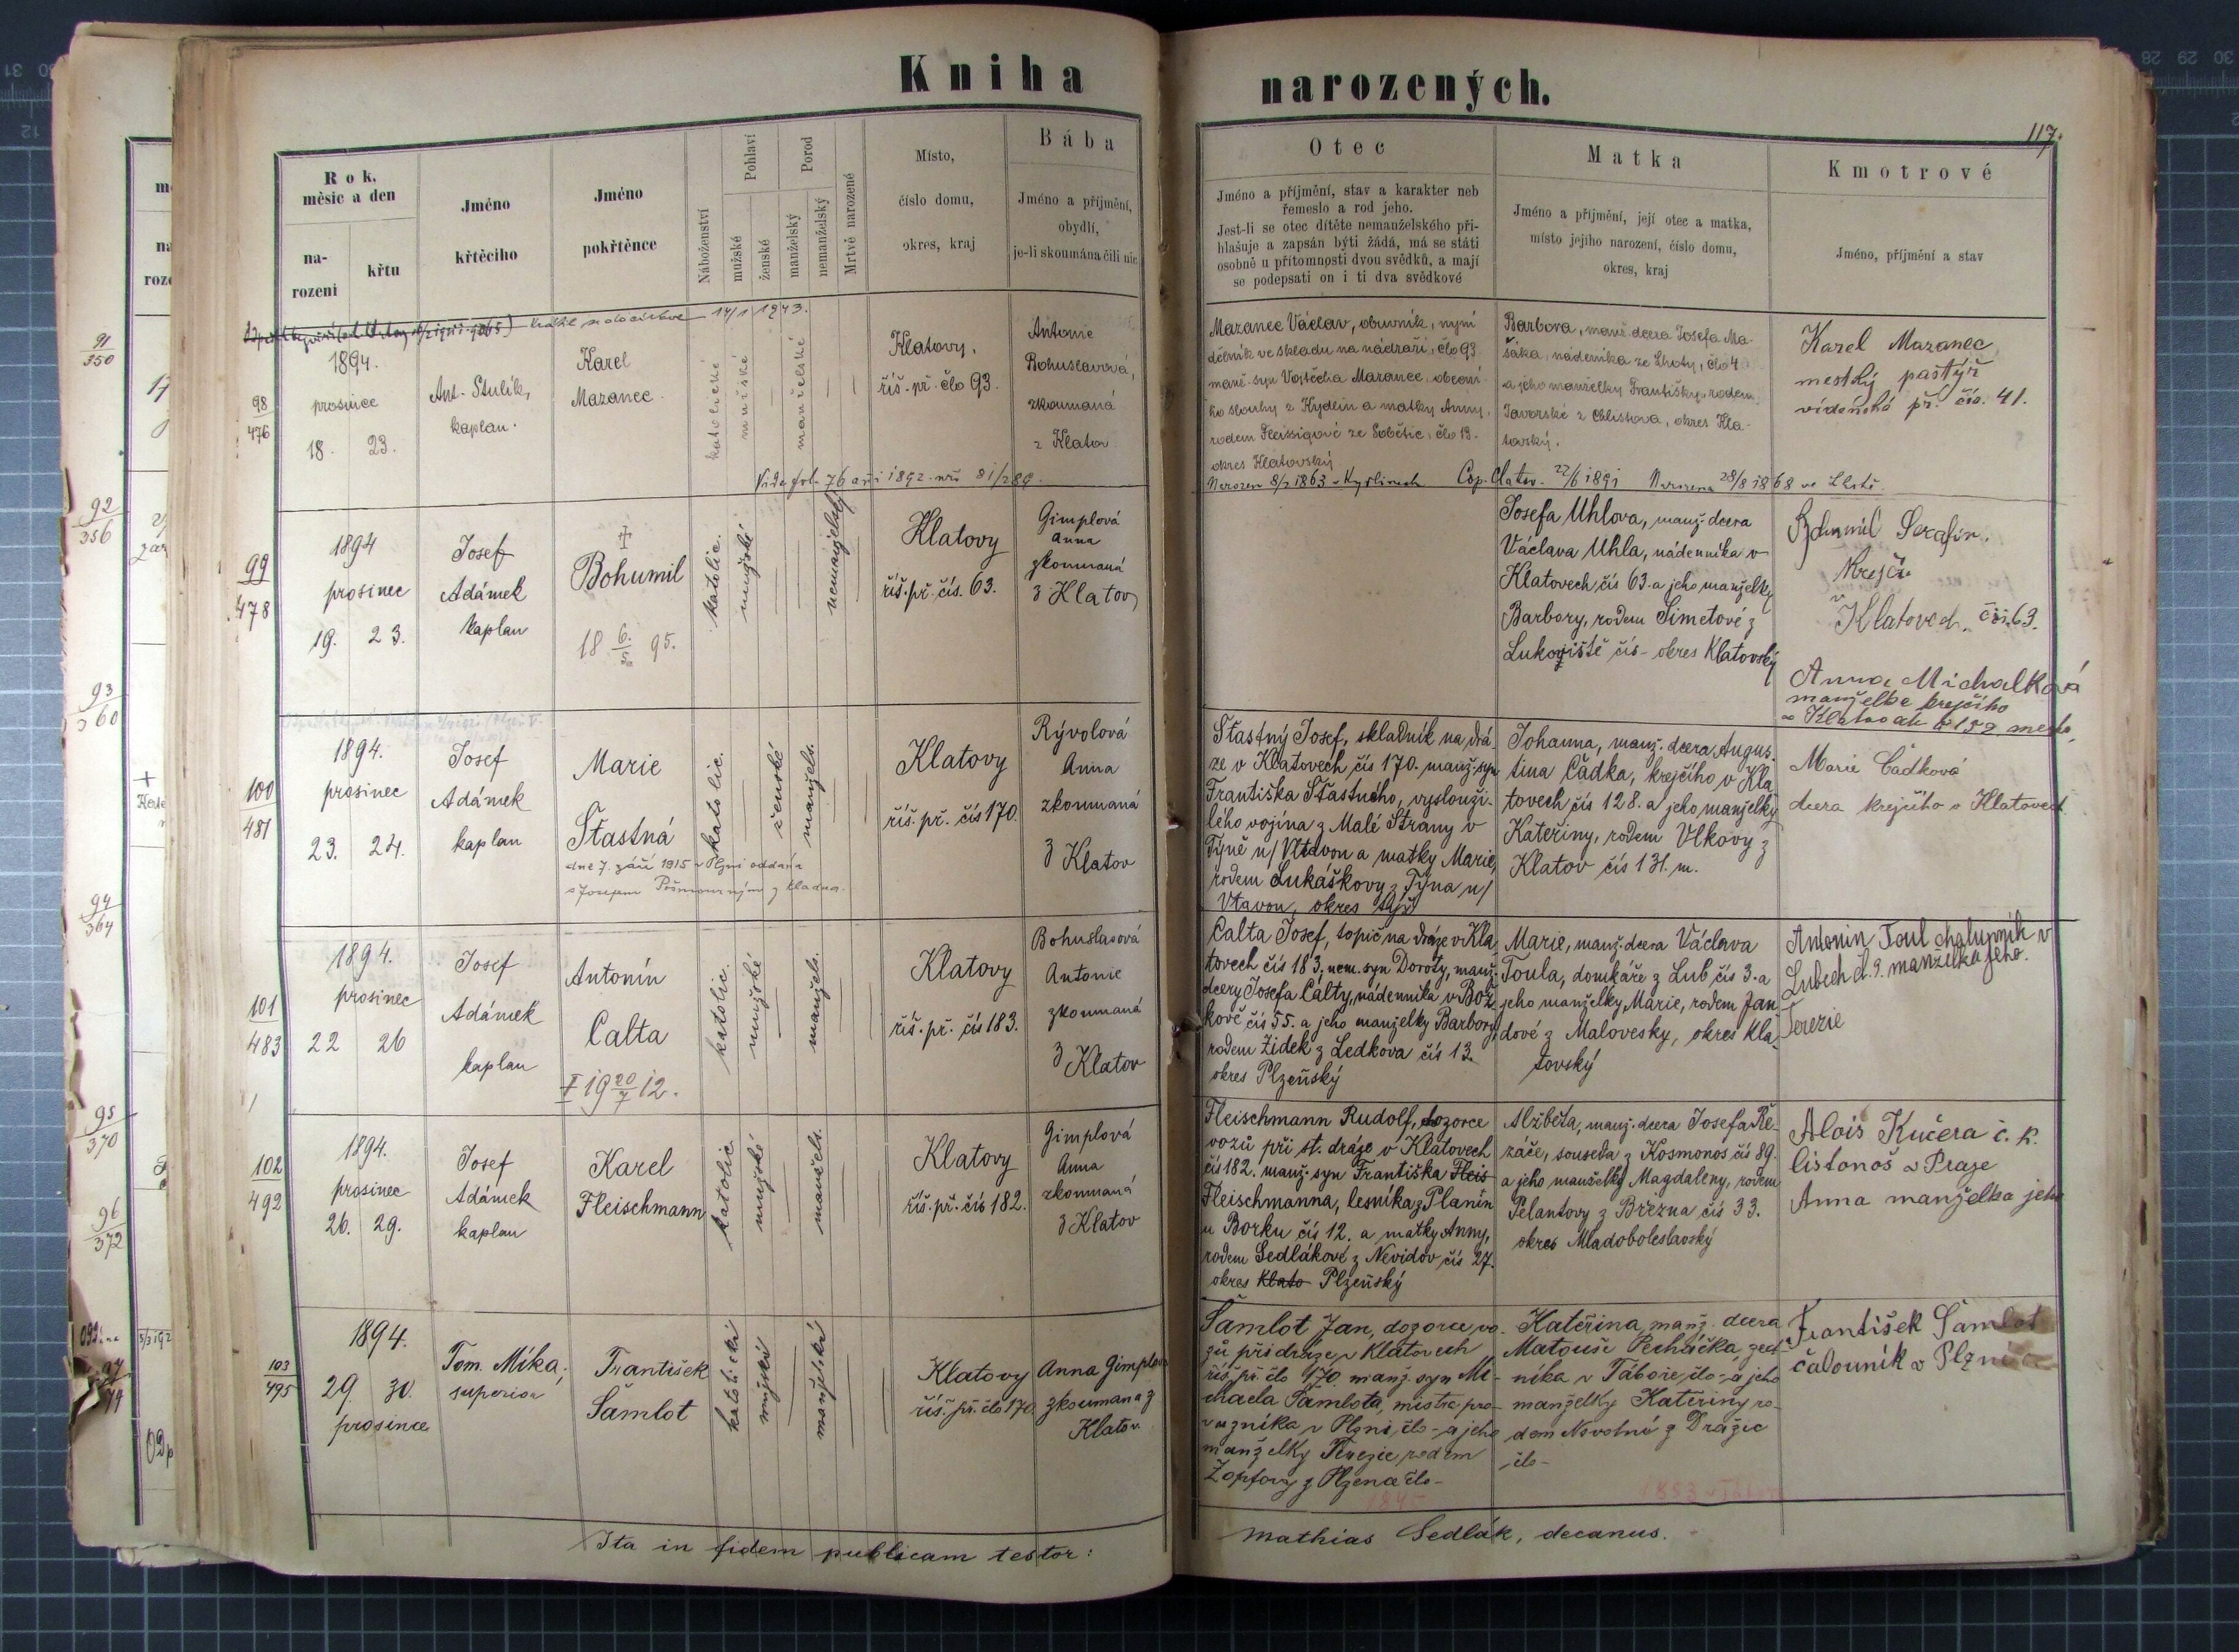 Kniha narozených.
117.
Rok, měsíc a den
narození
křtu
Jméno křtěcího
Jméno pokřtěnce
Náboženství
Pohlaví
mužské
ženské
Porod
manželský
nemanželský
Mrtvě narozené
Místo,
číslo domu,
okres, kraj
Bába
Jméno a příjmění,
obydlí,
je-li skoumána čili nic
Otec
Jméno a příjmění, stav a karakter neb
řemeslo a rod jeho.
Jest-li se otec dítěte nemanželského při-
hlašuje a zapsán býti žádá, má se státi
osobně u přítomnosti dvou svědků, a mají
se podepsati on i ti dva svědkové
Matka
Jméno a příjmění, její otec a matka,
místo jejího narození, číslo domu,
okres, kraj
Kmotrové
Jméno, příjmění a stav
14/1 1943.
98
476
1894.
prosince
18. 23.
Ant. Stulík,
kaplan.
Karel
Mazanec
katolické
mužské
manželské
Klatovy,
říš. př. člo 93.
Antonie
Bohuslavová,
zkoumaná
z Klatov
Mazanec Václav, obuvník, nyní
dělník ve skladu na nádraží, člo 93
manž. syn Vojtěcha Mazance, obecní-
ho slouhy z Kydlin a matky Anny,
rodem Fleissigové ze Sobětic, člo 13.
okres Klatovský
Narozen 8/2 1863 v Kydlinech
Barbora, manž. dcera Josefa Ma-
šáka, nádeníka ze Lhoty, člo 4
a jeho manželky Františky, rodem
Javorské z Chlistova, okres Kla-
tovský.
Cop. Klatov. 22/6 1891 Narozena 28/8 1868 ve Lhotě
Karel Mazanec
mestký pastýř
vídeňské př. čís. 41.
Vide fol. 76 a 1892. 81/289.
99
478
1894
prosinec
19. 23.
Josef
Adámek
kaplan
+
Bohumil
18 6./5. 95.
katolic.
mužské
nemanželský
Klatovy
říš. př. čís. 63.
Gimplová
Anna
zkoumaná
z Klatov
Josefa Uhlova, manž. dcera
Václava Uhla, nádenníka v
Klatovech čís 63. a jeho manželky
Barbory, rodem Šimetové z
Lukoviště čís - okres Klatovský
Bohumil Serafin.
Krejčí
v Klatovech. čís. 63.
Anna Michalková
manželka krejčího
v Klatovach č 159 mesto,
100
481
1894.
prosinec
23. 24.
Josef
Adámek
kaplan
Marie
Šťastná
dne 7. září 1915 v Plzni oddána
s Josefem z Kladna.
katolic.
ženské
manžels.
Klatovy
říš. př. čís 170.
Rývolová
Anna
zkoumaná
z Klatov
Šťastný Josef, skladník na drá-
ze v Klatovech čís 170. manž. syn
Františka Šťastného, vyslouži-
lého vojína z Malé Strany v
Týně n/ Vltavou a matky Marie,
rodem Lukáškovy z Týna n/
Vltavou, okres týž
Johanna, manž. dcera Augus-
tina Čádka, krejčího v Kla-
tovech čís 128. a jeho manželky
Kateřiny, rodem Vlkovy z
Klatov čís 131. m.
Marie Čadková
dcera krejčího v Klatovech
101
483
1894.
prosinec
22 26
Josef
Adámek
kaplan
Antonín
Calta
‡ 19 20/7 12.
katolic.
mužské
manžels.
Klatovy
říš. př. čís 183.
Bohuslavová
Antonie
zkoumaná
z Klatov
Calta Josef, topič na dráze v Kla-
tovech čís 183, nem. syn Doroty, manž.
dcery Josefa Calty, nádenníka v Bož-
kově čís 55. a jeho manželky Barbory,
rodem Židek z Ledkova čís 13.
okres Plzeňský
Marie, manž. dcera Václava
Toula, domkáře z Lub čís 3. a
jeho manželky Marie, rodem Jan-
dové z Malovesky, okres Kla-
tovský
Antonin Toul chalupník v
Lubech č. 9. manželka jeho.
Terezie
102
492
1894.
prosinec
26. 29.
Josef
Adámek
kaplan
Karel
Fleischmann
katolic.
mužské
manžels.
Klatovy
říš. př. čís 182.
Gimplová
Anna
zkoumaná
z Klatov
Fleischmann Rudolf, dozorce
vozů při st. dráze v Klatovech
čís 182. manž. syn Františka Fleis
Fleischmanna, lesníka z Planin
u Borku čís 12. a matky Anny,
rodem Sedlákové z Nevidov čís 27.
okres Klato Plzeňský
Alžběta, manž. dcera Josefa Ře-
záče, souseda z Kosmonos čís 89.
a jeho manželky Magdaleny, rodem
Pelantovy z Března čís 33.
okres Mladoboleslavský
Alois Kučera č. k.
listonoš v Praze
Anna manželka jeho
103
495
1894.
29. 30.
prosince
Tom. Míka,
superior
František
Šamlot
katolické
mužské
manželské
Klatovy
říš. př. člo 170.
Anna Gimplova
zkoumana z
Klatov.
Šamlot Jan, dozorce vo-
zů při dráze v Klatovech
říš. př. člo 170. manž. syn Mi-
chaela Šamlota, mistra pro-
vazníka v Plzni, člo - a jeho
manželky Terezie rodem
Žopfovy z Plzena člo -
Kateřina, manž. dcera
Matouše Pecháčka, zed-
níka v Táboře, člo - a jeho
manželky Kateřiny ro-
dem Novotné z Dražic
člo -
František Šamlot
čalouník v Plzni
Ita in fidem publicam testor:
Mathias Sedlák, decanus.
91
350
92
356
93
360
94
364
95
370
96
372